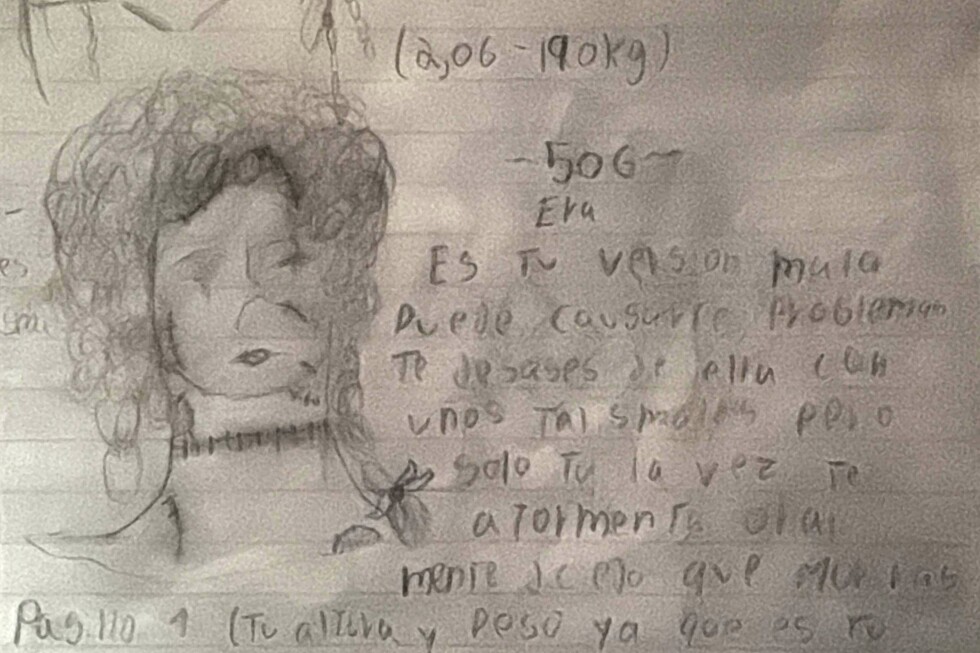 (2,06-190kg)
-506-
Era
Es Tu version mala
Puede causarte Problemas
Te desases de ella con
unos Talismales pero
solo Tu la vez Te
aTormenTa
menTe que
Pasillo 1 (Tu alTura y peso ya que es Tu